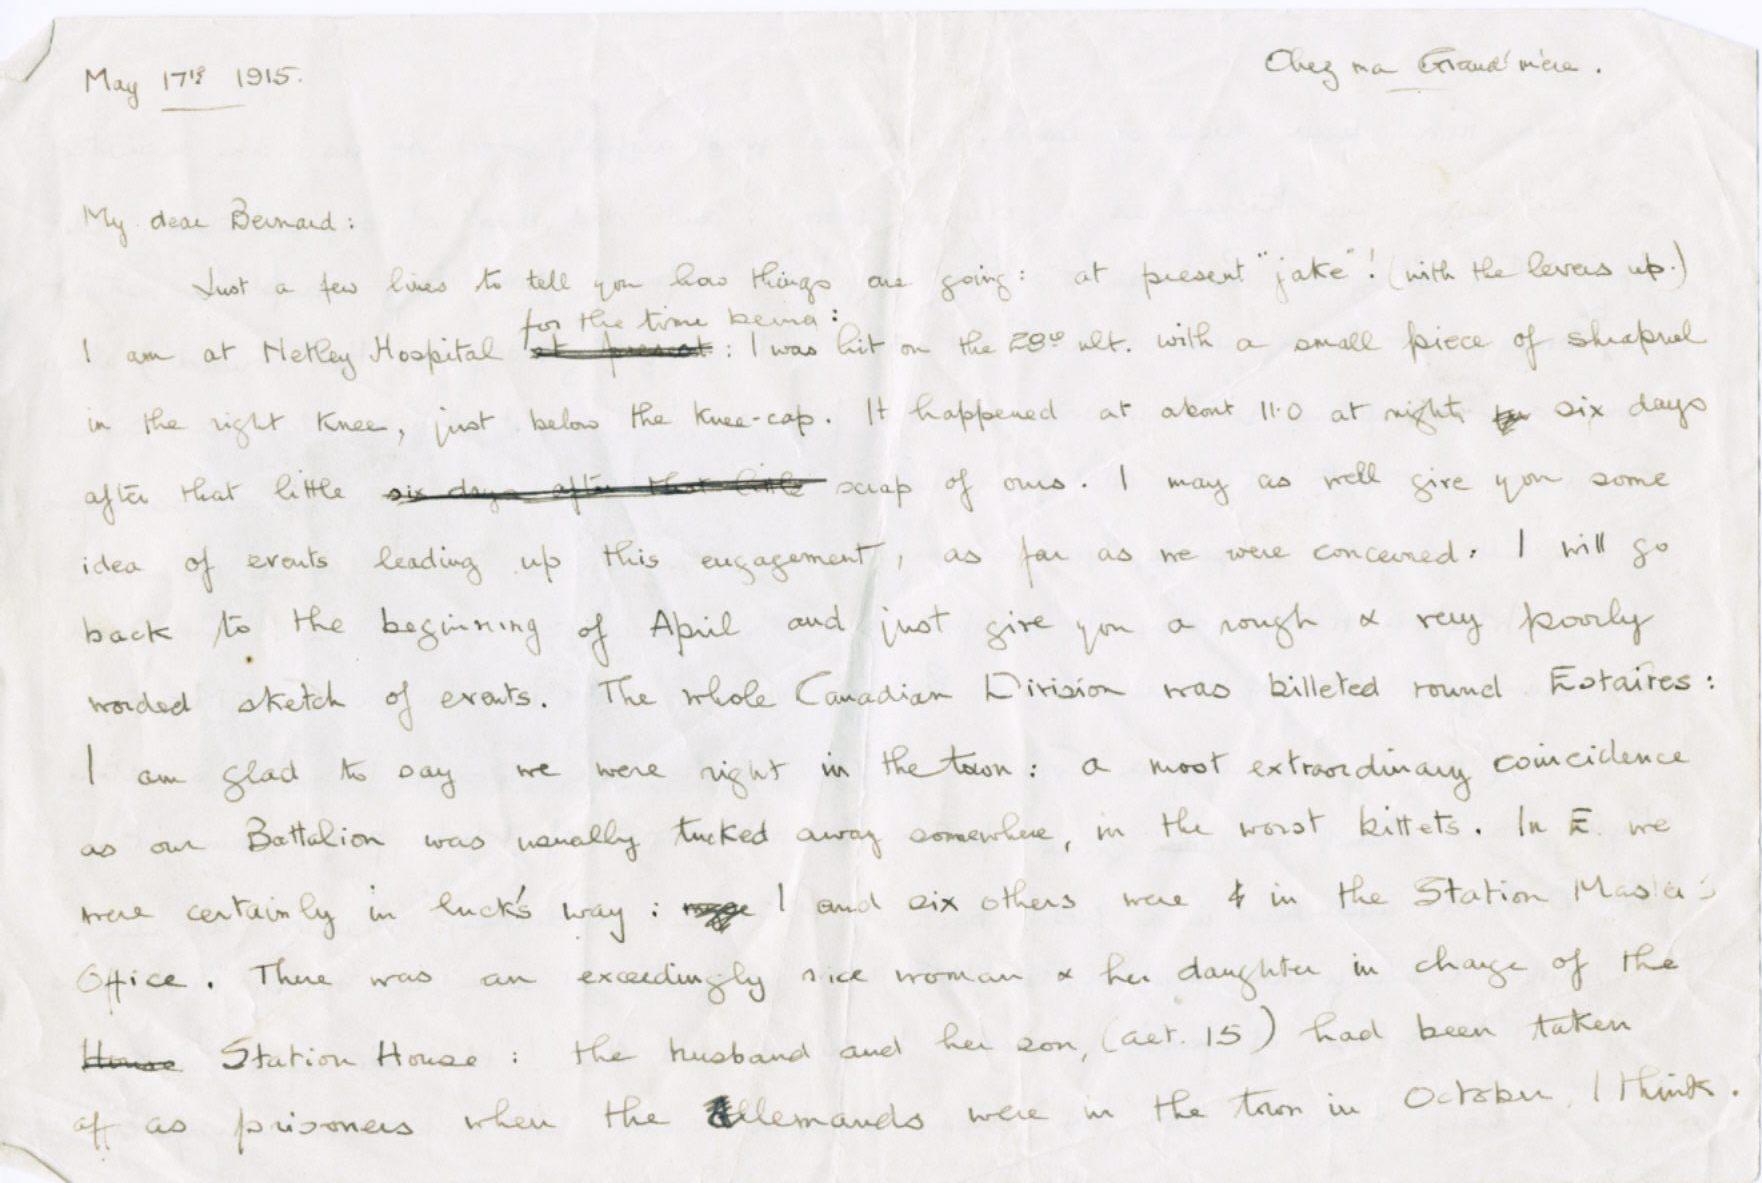 May 17th 1915.
Chez ma Grand'mère.
My dear Bernard:
Just a few lines to tell you how things are going: at present "jake"! (with the levers up.)
for the time being:
I am at Netley Hospital at present: I was hit on the 28th ult. with a small piece of shrapnel
in the right knee, just below the knee-cap. It happened at about 11.0 at night, six days
after that little six days after that little scrap of ours. I may as well give you some
idea of events leading up this engagement, as far as we were concerned: I will go
back to the beginning of April and just give you a rough & very poorly
worded sketch of events. The whole Canadian Division was billeted round Estaires:
I am glad to say we were right in the town: a most extraordinary coincidence
as our Battalion was usually tucked away somewhere, in the worst bittets. In E. we
were certainly in luck's way: I and six others were in the Station Master's
Office. There was an exceedingly nice woman & her daughter in charge of the
House Station House: the husband and her son, (aet. 15) had been taken
off as prisoners when the Allemands were in the town in October, I think.